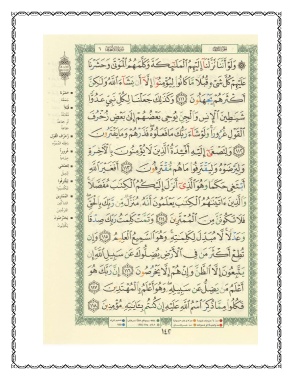 ۞ وَلَوْ أَنَّنَا نَزَّلْنَا إِلَيْهِمُ الْمَلَٰٓئِكَةَ وَكَلَّمَهُمُ الْمَوْتَىٰ وَحَشَرْنَا
عَلَيْهِمْ كُلَّ شَيْءٍ قُبُلًا مَّا كَانُوا لِيُؤْمِنُوٓا إِلَّآ أَن يَشَآءَ اللَّهُ وَلَٰكِنَّ
أَكْثَرَهُمْ يَجْهَلُونَ ١١١ وَكَذَٰلِكَ جَعَلْنَا لِكُلِّ نَبِيٍّ عَدُوًّا
شَيَٰطِينَ الْإِنسِ وَالْجِنِّ يُوحِي بَعْضُهُمْ إِلَىٰ بَعْضٍ زُخْرُفَ
الْقَوْلِ غُرُورًا وَلَوْ شَآءَ رَبُّكَ مَا فَعَلُوهُ فَذَرْهُمْ وَمَا يَفْتَرُونَ
١١٢ وَلِتَصْغَىٰٓ إِلَيْهِ أَفْـِٔدَةُ الَّذِينَ لَا يُؤْمِنُونَ بِالْـَٔاخِرَةِ
وَلِيَرْضَوْهُ وَلِيَقْتَرِفُوا مَا هُم مُّقْتَرِفُونَ ١١٣ أَفَغَيْرَ اللَّهِ
أَبْتَغِي حَكَمًا وَهُوَ الَّذِيٓ أَنزَلَ إِلَيْكُمُ الْكِتَٰبَ مُفَصَّلًا
وَالَّذِينَ ءَاتَيْنَٰهُمُ الْكِتَٰبَ يَعْلَمُونَ أَنَّهُ مُنَزَّلٌ مِّن رَّبِّكَ بِالْحَقِّ
فَلَا تَكُونَنَّ مِنَ الْمُمْتَرِينَ ١١٤ وَتَمَّتْ كَلِمَتُ رَبِّكَ صِدْقًا
وَعَدْلًا لَّا مُبَدِّلَ لِكَلِمَٰتِهِ وَهُوَ السَّمِيعُ الْعَلِيمُ ١١٥ وَإِن
تُطِعْ أَكْثَرَ مَن فِي الْأَرْضِ يُضِلُّوكَ عَن سَبِيلِ اللَّهِ إِن
يَتَّبِعُونَ إِلَّا الظَّنَّ وَإِنْ هُمْ إِلَّا يَخْرُصُونَ ١١٦ إِنَّ رَبَّكَ هُوَ
أَعْلَمُ مَن يَضِلُّ عَن سَبِيلِهِ وَهُوَ أَعْلَمُ بِالْمُهْتَدِينَ ١١٧
فَكُلُوا مِمَّا ذُكِرَ اسْمُ اللَّهِ عَلَيْهِ إِن كُنتُم بِـَٔايَٰتِهِ مُؤْمِنِينَ ١١٨
١٤٢